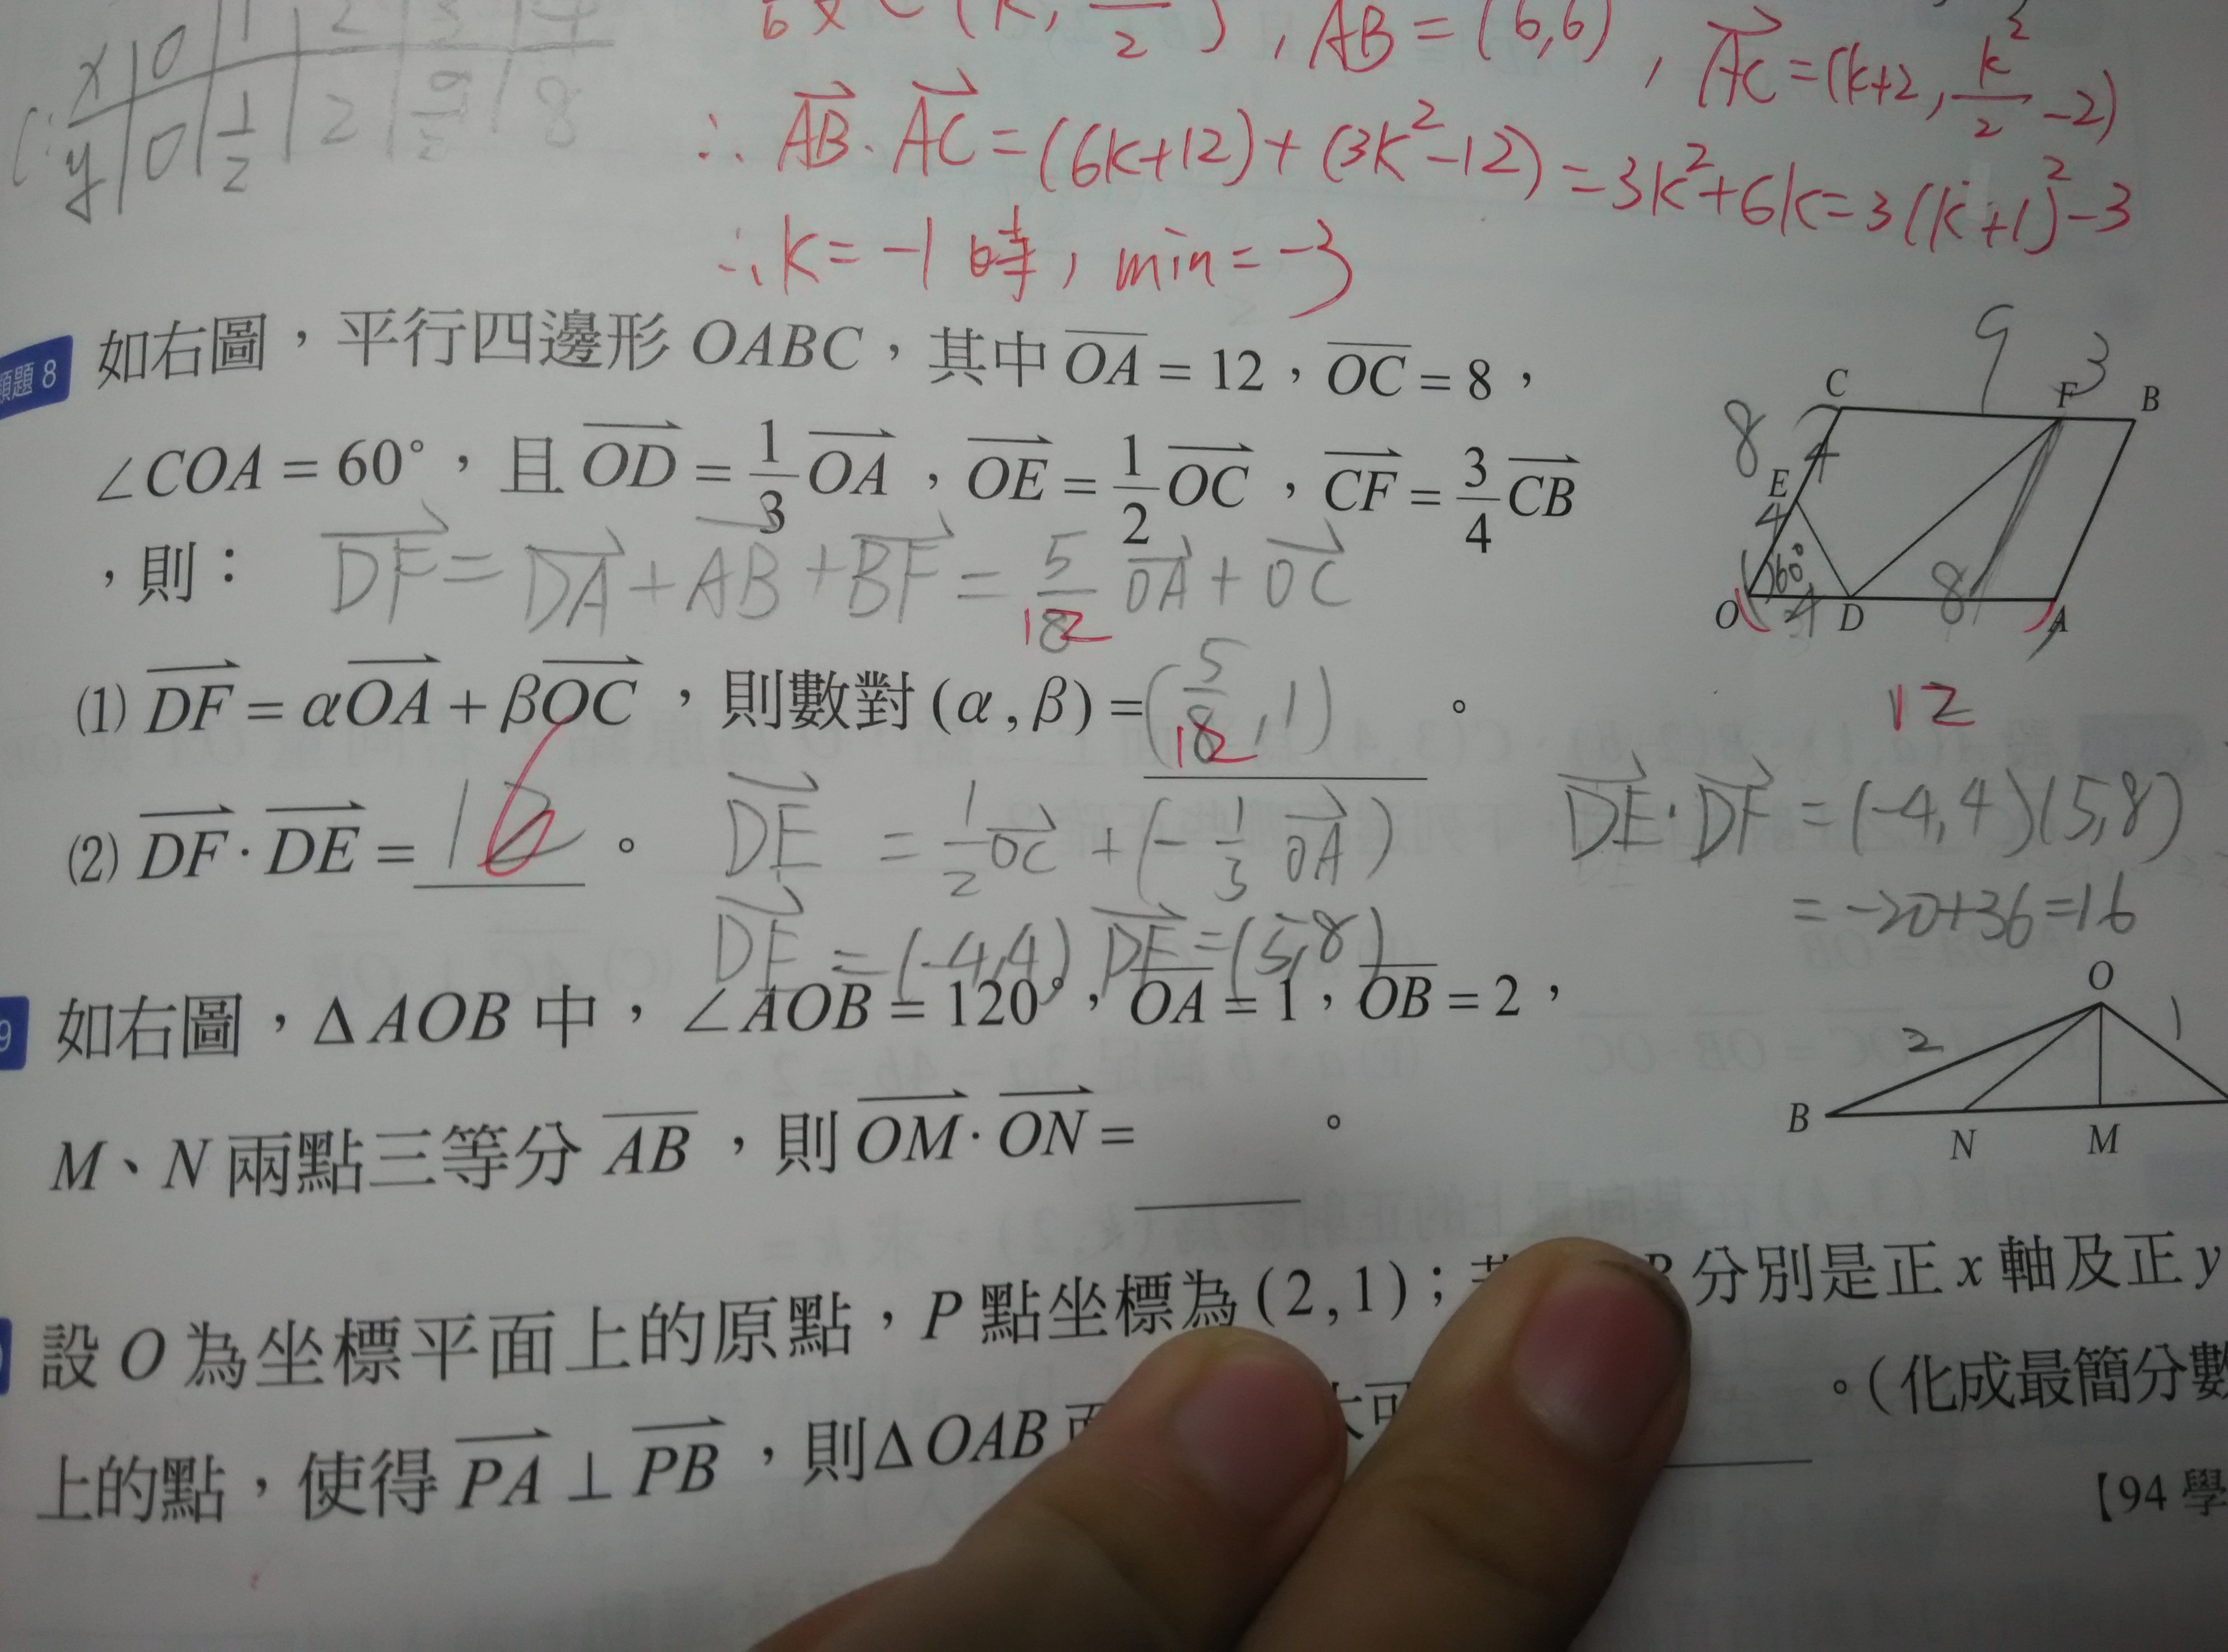 x 0 1 2 3 4
y 0 1/2 2 9/2 8
AB = (6,6), AC = (k+2, k²/2 -2)
∴ AB · AC = (6k+12) + (3k²-12) = 3k²+6k = 3(k+1)²-3
∴ k = -1 時, min = -3
類題 8 如右圖，平行四邊形 OABC，其中 OA = 12，OC = 8，
∠COA = 60°，且 OD = 1/3 OA，OE = 1/2 OC，CF = 3/4 CB
，則：
DF = DA + AB + BF = 5/12 OA + OC
C 9 F 3 B
8 4
E
4 60° 8
O 4 D A
12
(1) DF = αOA + βOC，則數對 (α , β) = (5/12, 1)。
(2) DF · DE = 16。
DE = 1/2 OC + (-1/3 OA)
DE · DF = (-4,4)(5,8)
= -20+36=16
DE = (-4,4) DF = (5,8)
9 如右圖，Δ AOB 中，∠AOB = 120°，OA = 1，OB = 2，
M、N 兩點三等分 AB，則 OM · ON = 。
O
2 1
B N M
設 O 為坐標平面上的原點，P 點坐標為 (2 , 1)； B 分別是正 x 軸及正 y
上的點，使得 PA ⊥ PB，則Δ OAB 。(化成最簡分數
【94 學